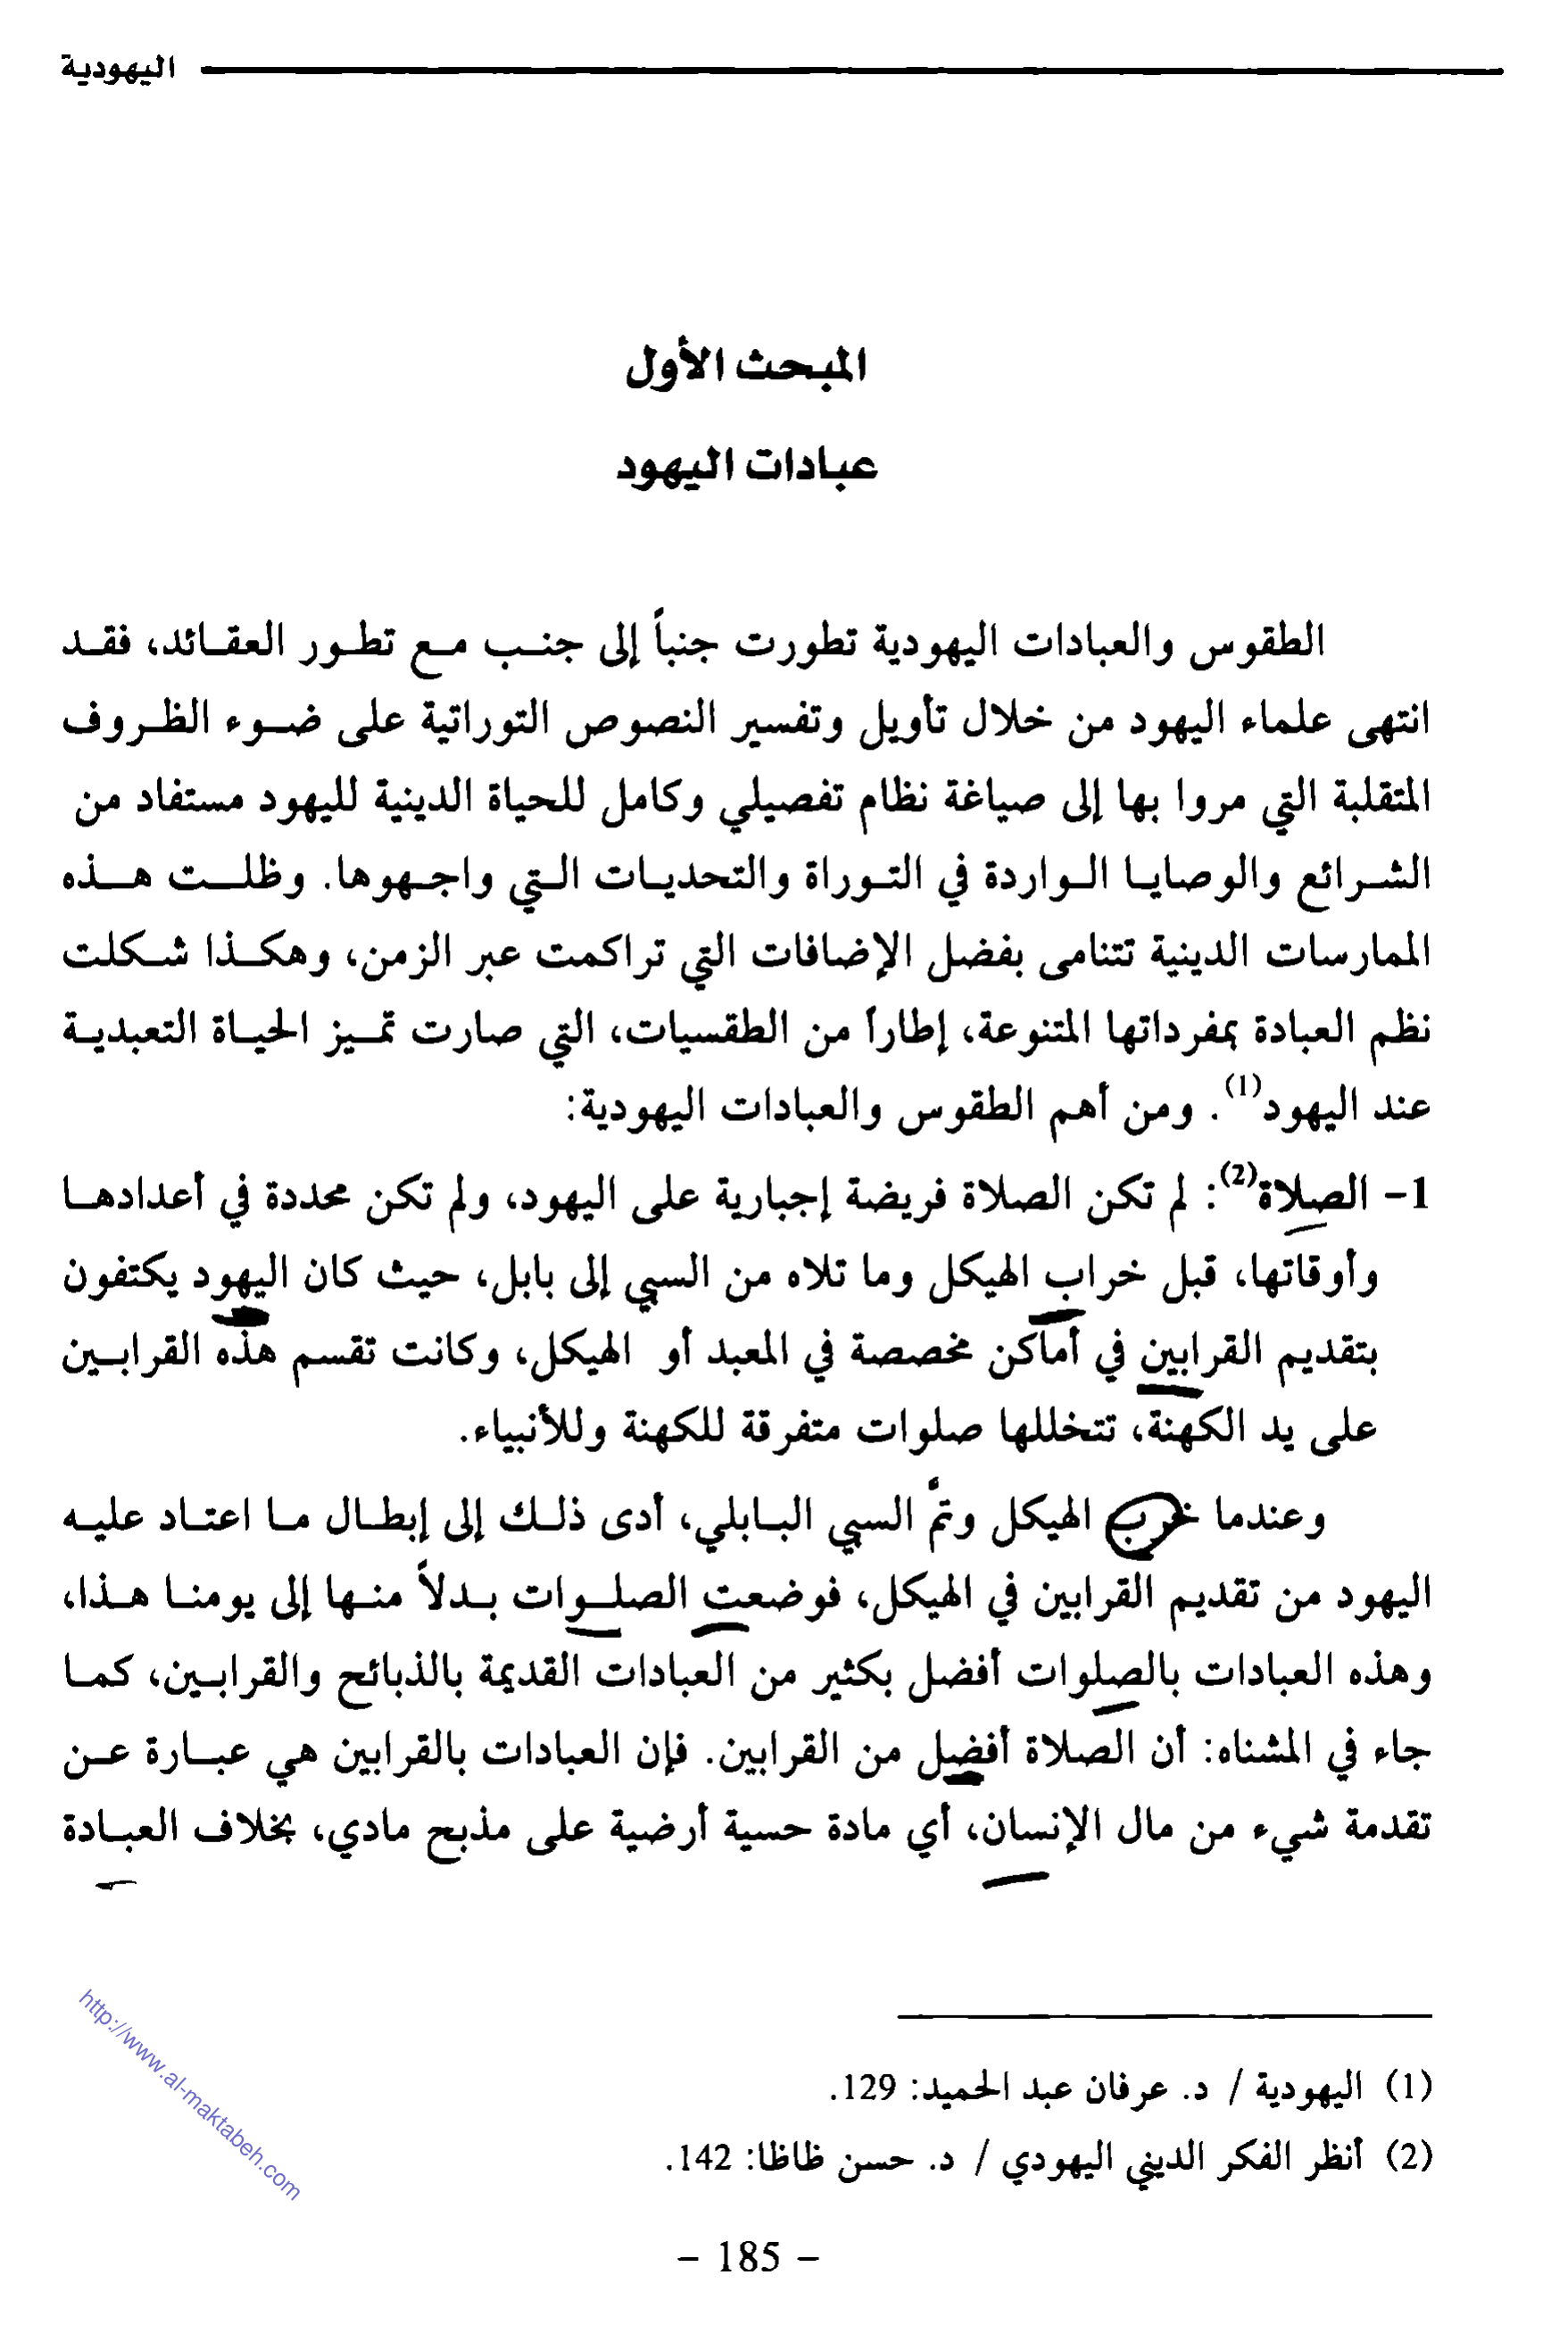 اليهودية
المبحث الأول
عبادات اليهود
الطقوس والعبادات اليهودية تطورت جنباً إلى جنب مع تطور العقائد، فقد
انتهى علماء اليهود من خلال تأويل وتفسير النصوص التوراتية على ضوء الظروف
المتقلبة التي مروا بها إلى صياغة نظام تفصيلي وكامل للحياة الدينية لليهود مستفاد من
الشرائع والوصايا الواردة في التوراة والتحديات التي واجهوها. وظلت هذه
الممارسات الدينية تتنامى بفضل الإضافات التي تراكمت عبر الزمن، وهكذا شكلت
نظم العبادة بمفرداتها المتنوعة، إطاراً من الطقسيات، التي صارت تميز الحياة التعبدية
عند اليهود(1). ومن أهم الطقوس والعبادات اليهودية:
1- الصلاة(2): لم تكن الصلاة فريضة إجبارية على اليهود، ولم تكن محددة في أعدادها
وأوقاتها، قبل خراب الهيكل وما تلاه من السبي إلى بابل، حيث كان اليهود يكتفون
بتقديم القرابين في أماكن مخصصة في المعبد أو الهيكل، وكانت تقسم هذه القرابين
على يد الكهنة، تتخللها صلوات متفرقة للكهنة وللأنبياء.
وعندما خرب الهيكل وتمّ السبي البابلي، أدى ذلك إلى إبطال ما اعتاد عليه
اليهود من تقديم القرابين في الهيكل، فوضعت الصلوات بدلاً منها إلى يومنا هذا،
وهذه العبادات بالصلوات أفضل بكثير من العبادات القديمة بالذبائح والقرابين، كما
جاء في المشناه: أن الصلاة أفضل من القرابين. فإن العبادات بالقرابين هي عبارة عن
تقدمة شيء من مال الإنسان، أي مادة حسية أرضية على مذبح مادي، بخلاف العبادة
(1) اليهودية / د. عرفان عبد الحميد: 129.
(2) أنظر الفكر الديني اليهودي / د. حسن ظاظا: 142.
http://www.al-maktabeh.com
- 185 -